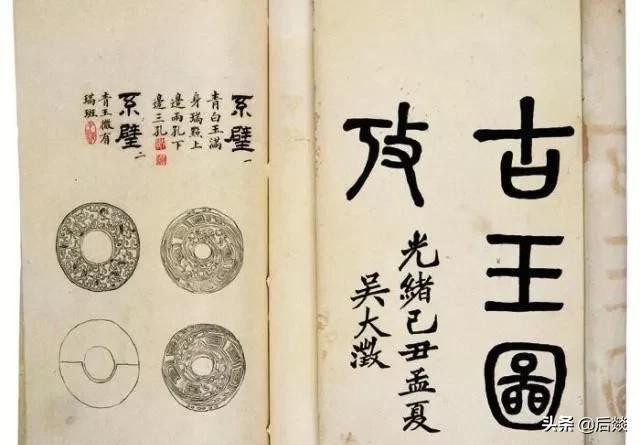 古玉圖
攷
光緒己丑孟夏
吳大澂
系璧一
青白玉滿
身璊點上
邊兩孔下
邊三孔
系璧二
青玉微有
璊斑
头条 @后燚